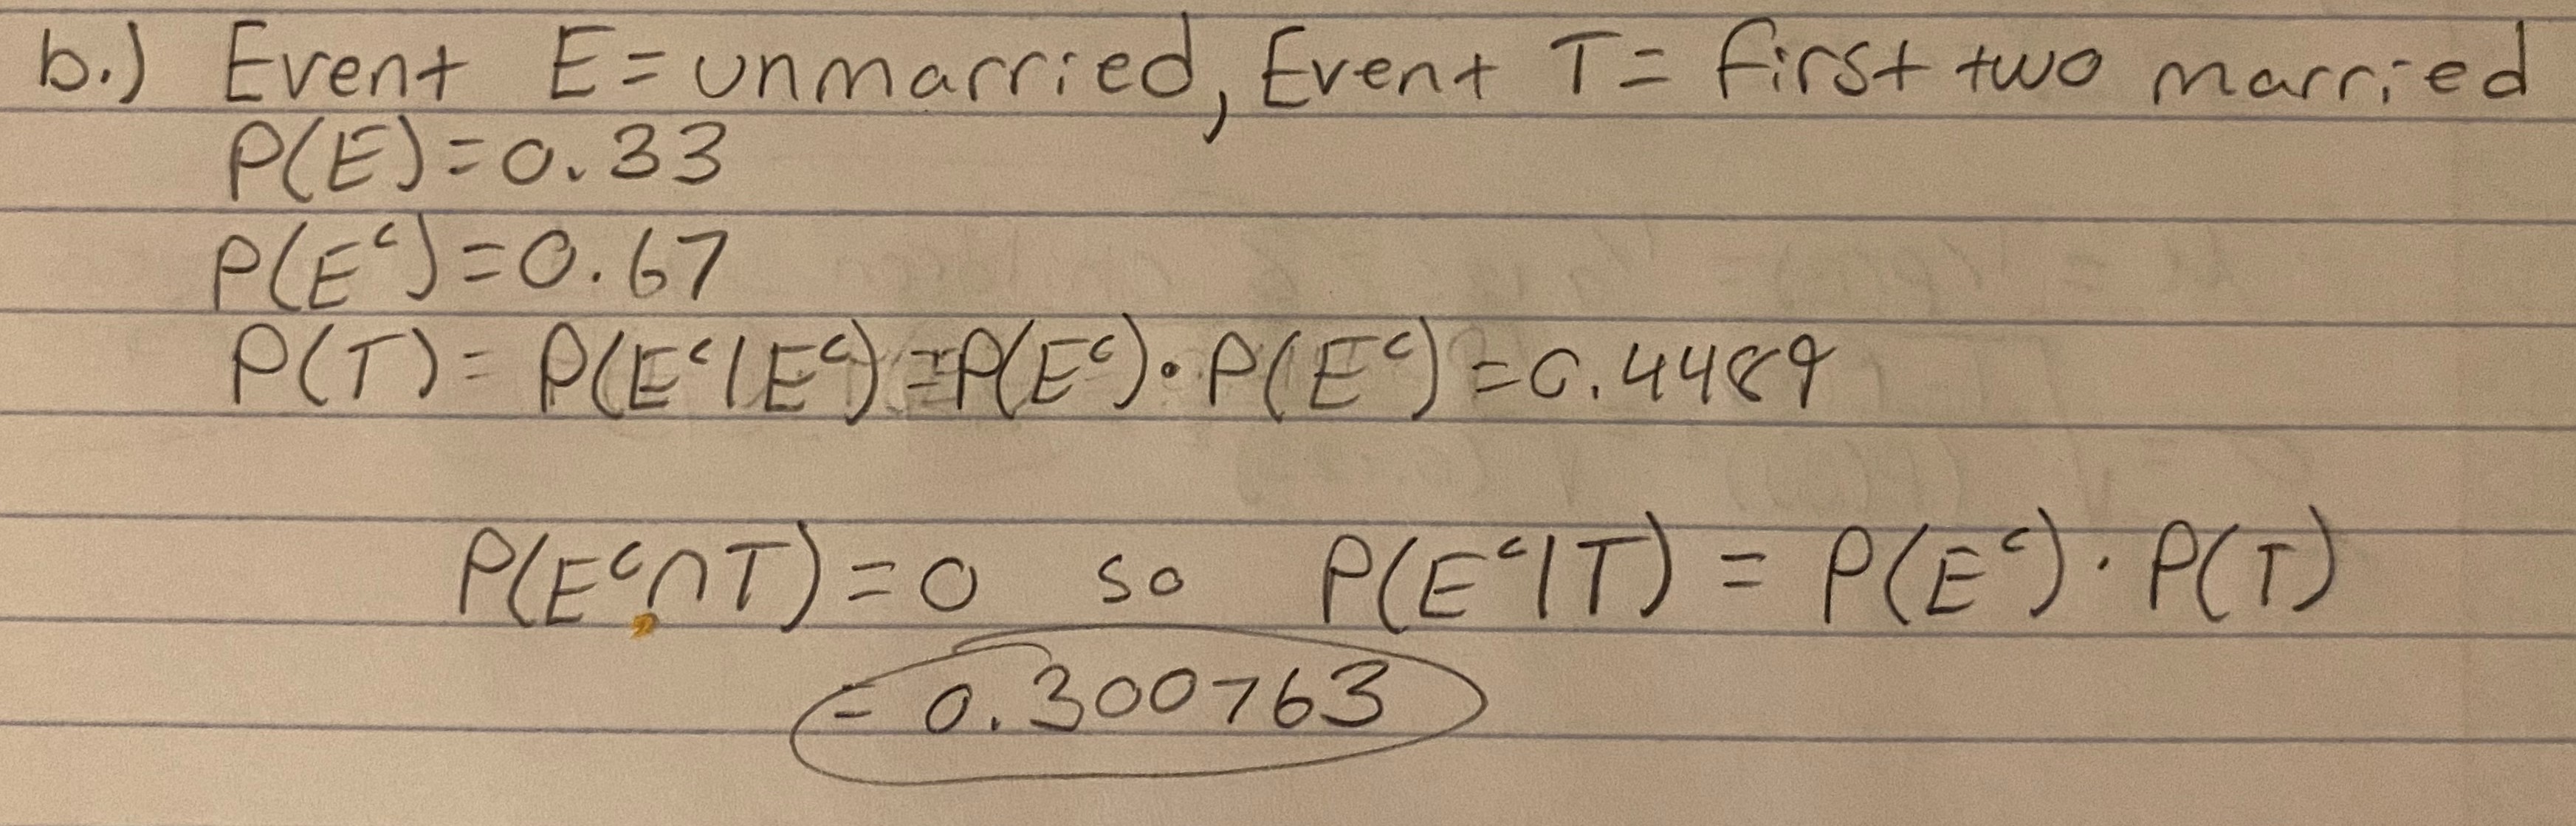 b.) Event E = unmarried, Event T = first two married
P(E) = 0.33
P(Eᶜ) = 0.67
P(T) = P(Eᶜ|Eᶜ) = P(Eᶜ) · P(Eᶜ) = 0.4489
P(Eᶜ∩T) = 0 so P(Eᶜ|T) = P(Eᶜ) · P(T)
= 0.300763